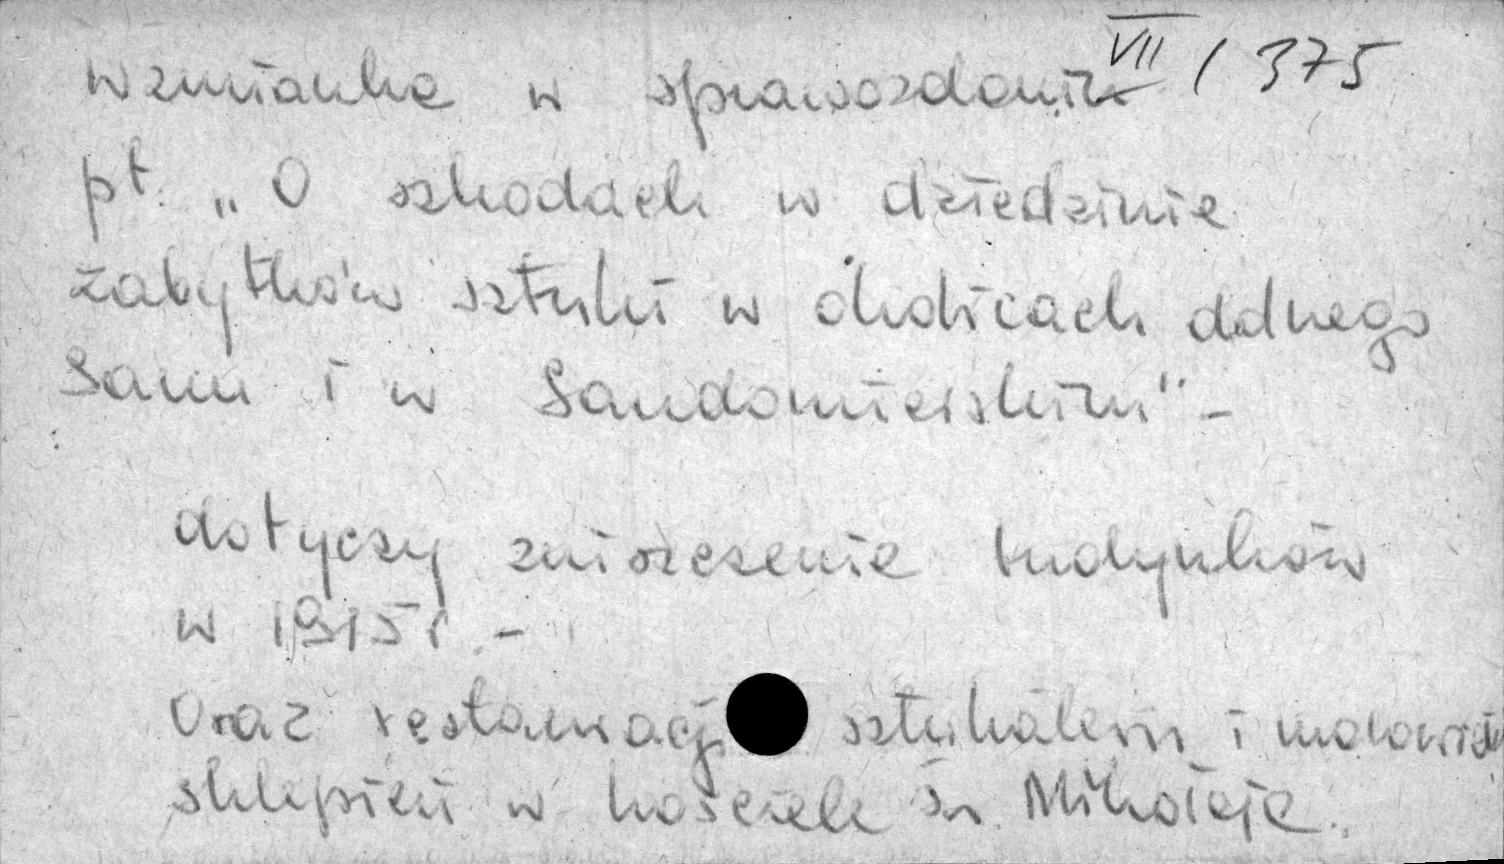 VII / 375
wzmianka w sprawozdaniu
pt. „O szkodach w dziedzinie
zabytków sztuki w okolicach dolnego
Sanu i w Sandomierskim" -
dotyczy zniszczenie budynków
w 1915 r. -
Oraz restauracji sztukaterii i malowideł
sklepień w kościele św. Mikołaja.